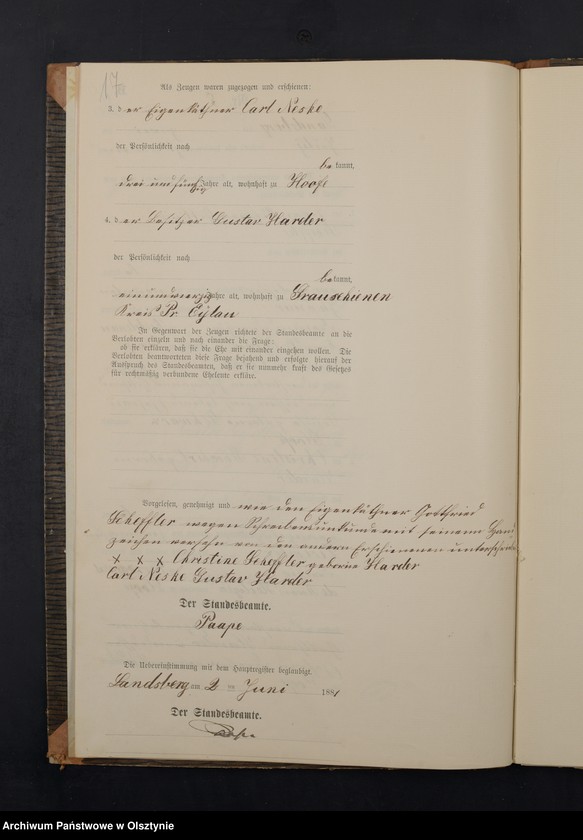 Als Zeugen waren zugezogen und erschienen:
3. der Eigenkäthner Carl Neske
der Persönlichkeit nach
bekannt,
drei und fünfzig Jahre alt, wohnhaft zu Hoofe
4. der Besitzer Gustav Harder
der Persönlichkeit nach
bekannt,
einundvierzig Jahre alt, wohnhaft zu Grauschienen
Kreis Pr. Eylau
In Gegenwart der Zeugen richtete der Standesbeamte an die
Verlobten einzeln und nach einander die Frage:
ob sie erklären, daß sie die Ehe mit einander eingehen wollen. Die
Verlobten beantworteten diese Frage bejahend und erfolgte hierauf der
Ausspruch des Standesbeamten, daß er sie nunmehr kraft des Gesetzes
für rechtmäßig verbundene Eheleute erkläre.
Vorgelesen, genehmigt und wie den Eigenkäthner Gottfried
Scheffler wegen Schreibensunkunde mit seinem Hand
zeichen versehn von den andern Erschienenen unterschrieben
X X X Christine Scheffler geborne Harder
Carl Neske Gustav Harder
Der Standesbeamte.
Paape
Die Uebereinstimmung mit dem Hauptregister beglaubigt.
Landsberg am 2 ten Juni 1881
Der Standesbeamte.
Paape
Archiwum Państwowe w Olsztynie